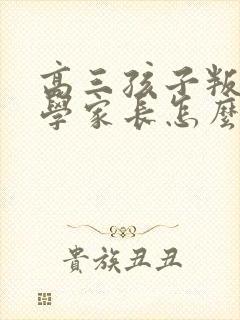 高三孩子叛
學家長怎麼
貴族丑丑